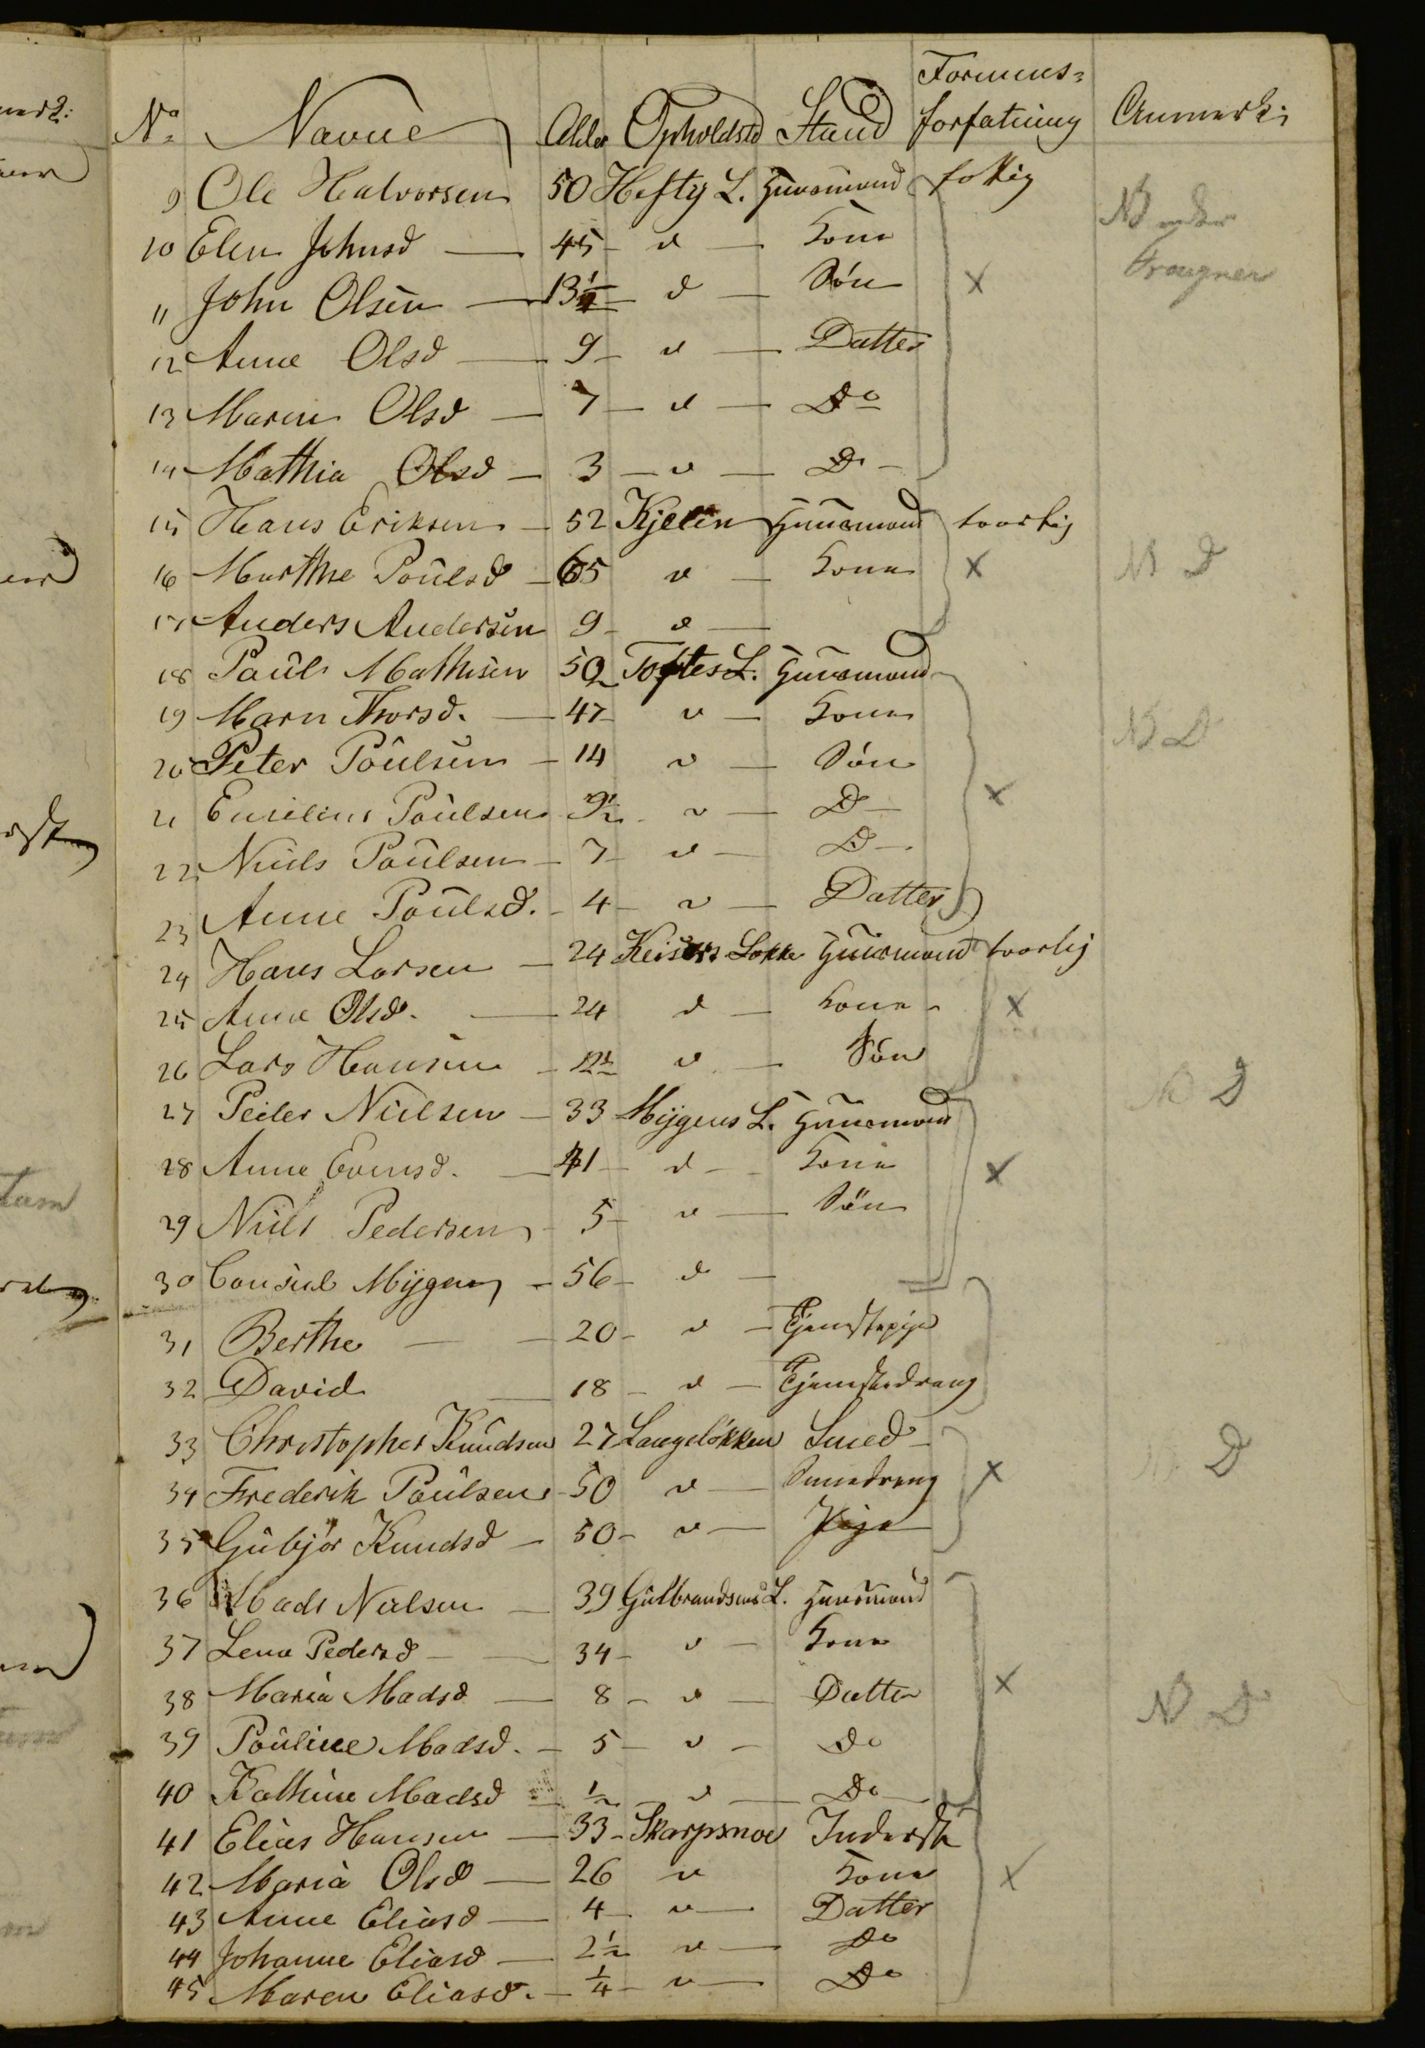 Formues=
No Navne Alder Opholdsted Stand forfatning Anmerk:
9 Ole Halvorsen 50 Hefty L. Huusmand fattig
10 Elen Johnsd — 45 — d — Kone NB under
11 John Olsen — 13½ — d — Søn x Frougner
12 Anne Olsd — 9 — d — Datter
13 Maren Olsd — 7 — d — Do
14 Mathia Olsd — 3 — d — D —
15 Hans Eriksen — 52 Kjelin Huusmand
16 Marthe Poulsd — 65 d — Kone x NB D
17 Anders Andersen 9 — d —
18 Paul Mathisen 50 Toftes L. Huusmand
19 Marn Thorsd. — 47 — d — Kone NB D
20 Peter Poulsen — 14 d — Søn
21 Emilius Poulsen 9½ d — D — x
22 Niels Poulsen — 7 — d — D —
23 Anne Poulsd. — 4 — d — Datter
24 Hans Larsen — 24 Keisers Løkke Huusmand
25 Anne Olsd. — 24 d — Kone — x
26 Lars Hansen — 1½ d — Søn
27 Peder Nielsen — 33 Mygens L. Huusmand NB D
28 Anne Evensd. — 41 — d — Kone x
29 Niels Pedersen — 5 — d — Søn
30 Consul Mygen — 56 — d —
31 Berthe — 20 — d — Tjenstepige
32 David — 18 — d — Tjenstedreng
33 Christopher Knudsen 27 Langeløkken Smed — D
34 Frederik Poulsen — 50 d — Smedreng x
35 Gubjør Knudsd — 50 — d — Pige
36 Mads Nielsen — 39 Gulbrandsens L. Huusmand
37 Lena Pedersd — 34 — d — Kone
38 Maria Madsd — 8 — d — Datter x NB D
39 Pouline Madsd. — 5 — d — Do
40 Kathine Madsd — ½ — d — Do —
41 Elias Hansen — 33 — Skarpsnoe Inderst
42 Maria Olsd — 26 d Kone x
43 Anne Eliasd — 4 — d — Datter
44 Johanne Eliasd — 2½ d — Do
45 Maren Eliasd. — ¼ — d — Do